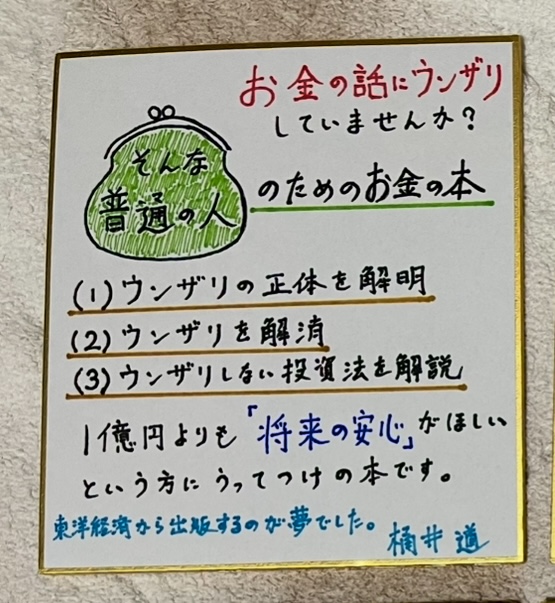 お金の話にウンザリ
していませんか?
そんな
普通の人
のためのお金の本
(1)ウンザリの正体を解明
(2)ウンザリを解消
(3)ウンザリしない投資法を解説
1億円よりも「将来の安心」がほしい
という方にうってつけの本です。
東洋経済から出版するのが夢でした。
桶井 道